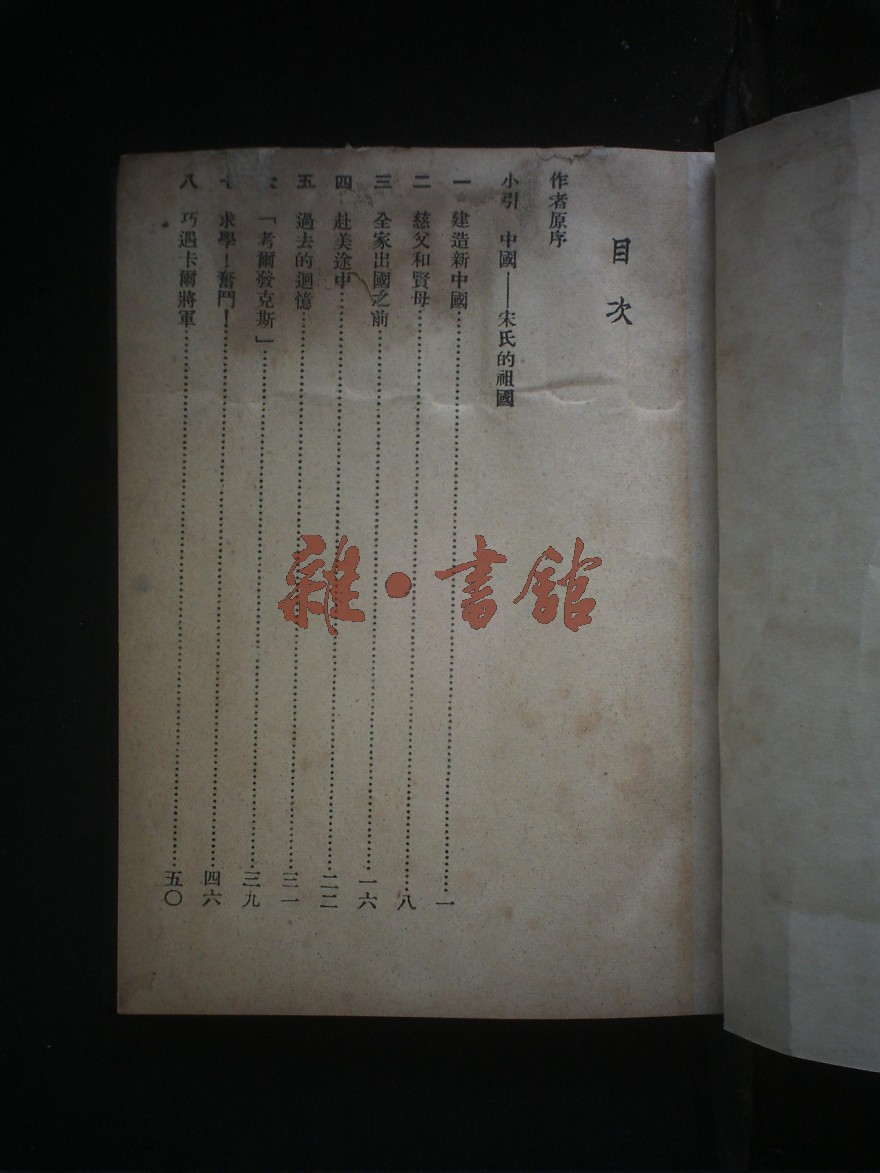 目次
作者原序
小引 中國——宋氏的祖國
一 建造新中國…………一
二 慈父和賢母…………八
三 全家出國之前…………一六
四 赴美途中…………二二
五 過去的迴憶…………三一
「考爾發克斯」…………三九
七 求學！奮鬥！…………四六
八 巧遇卡爾將軍…………五〇
雜·書館